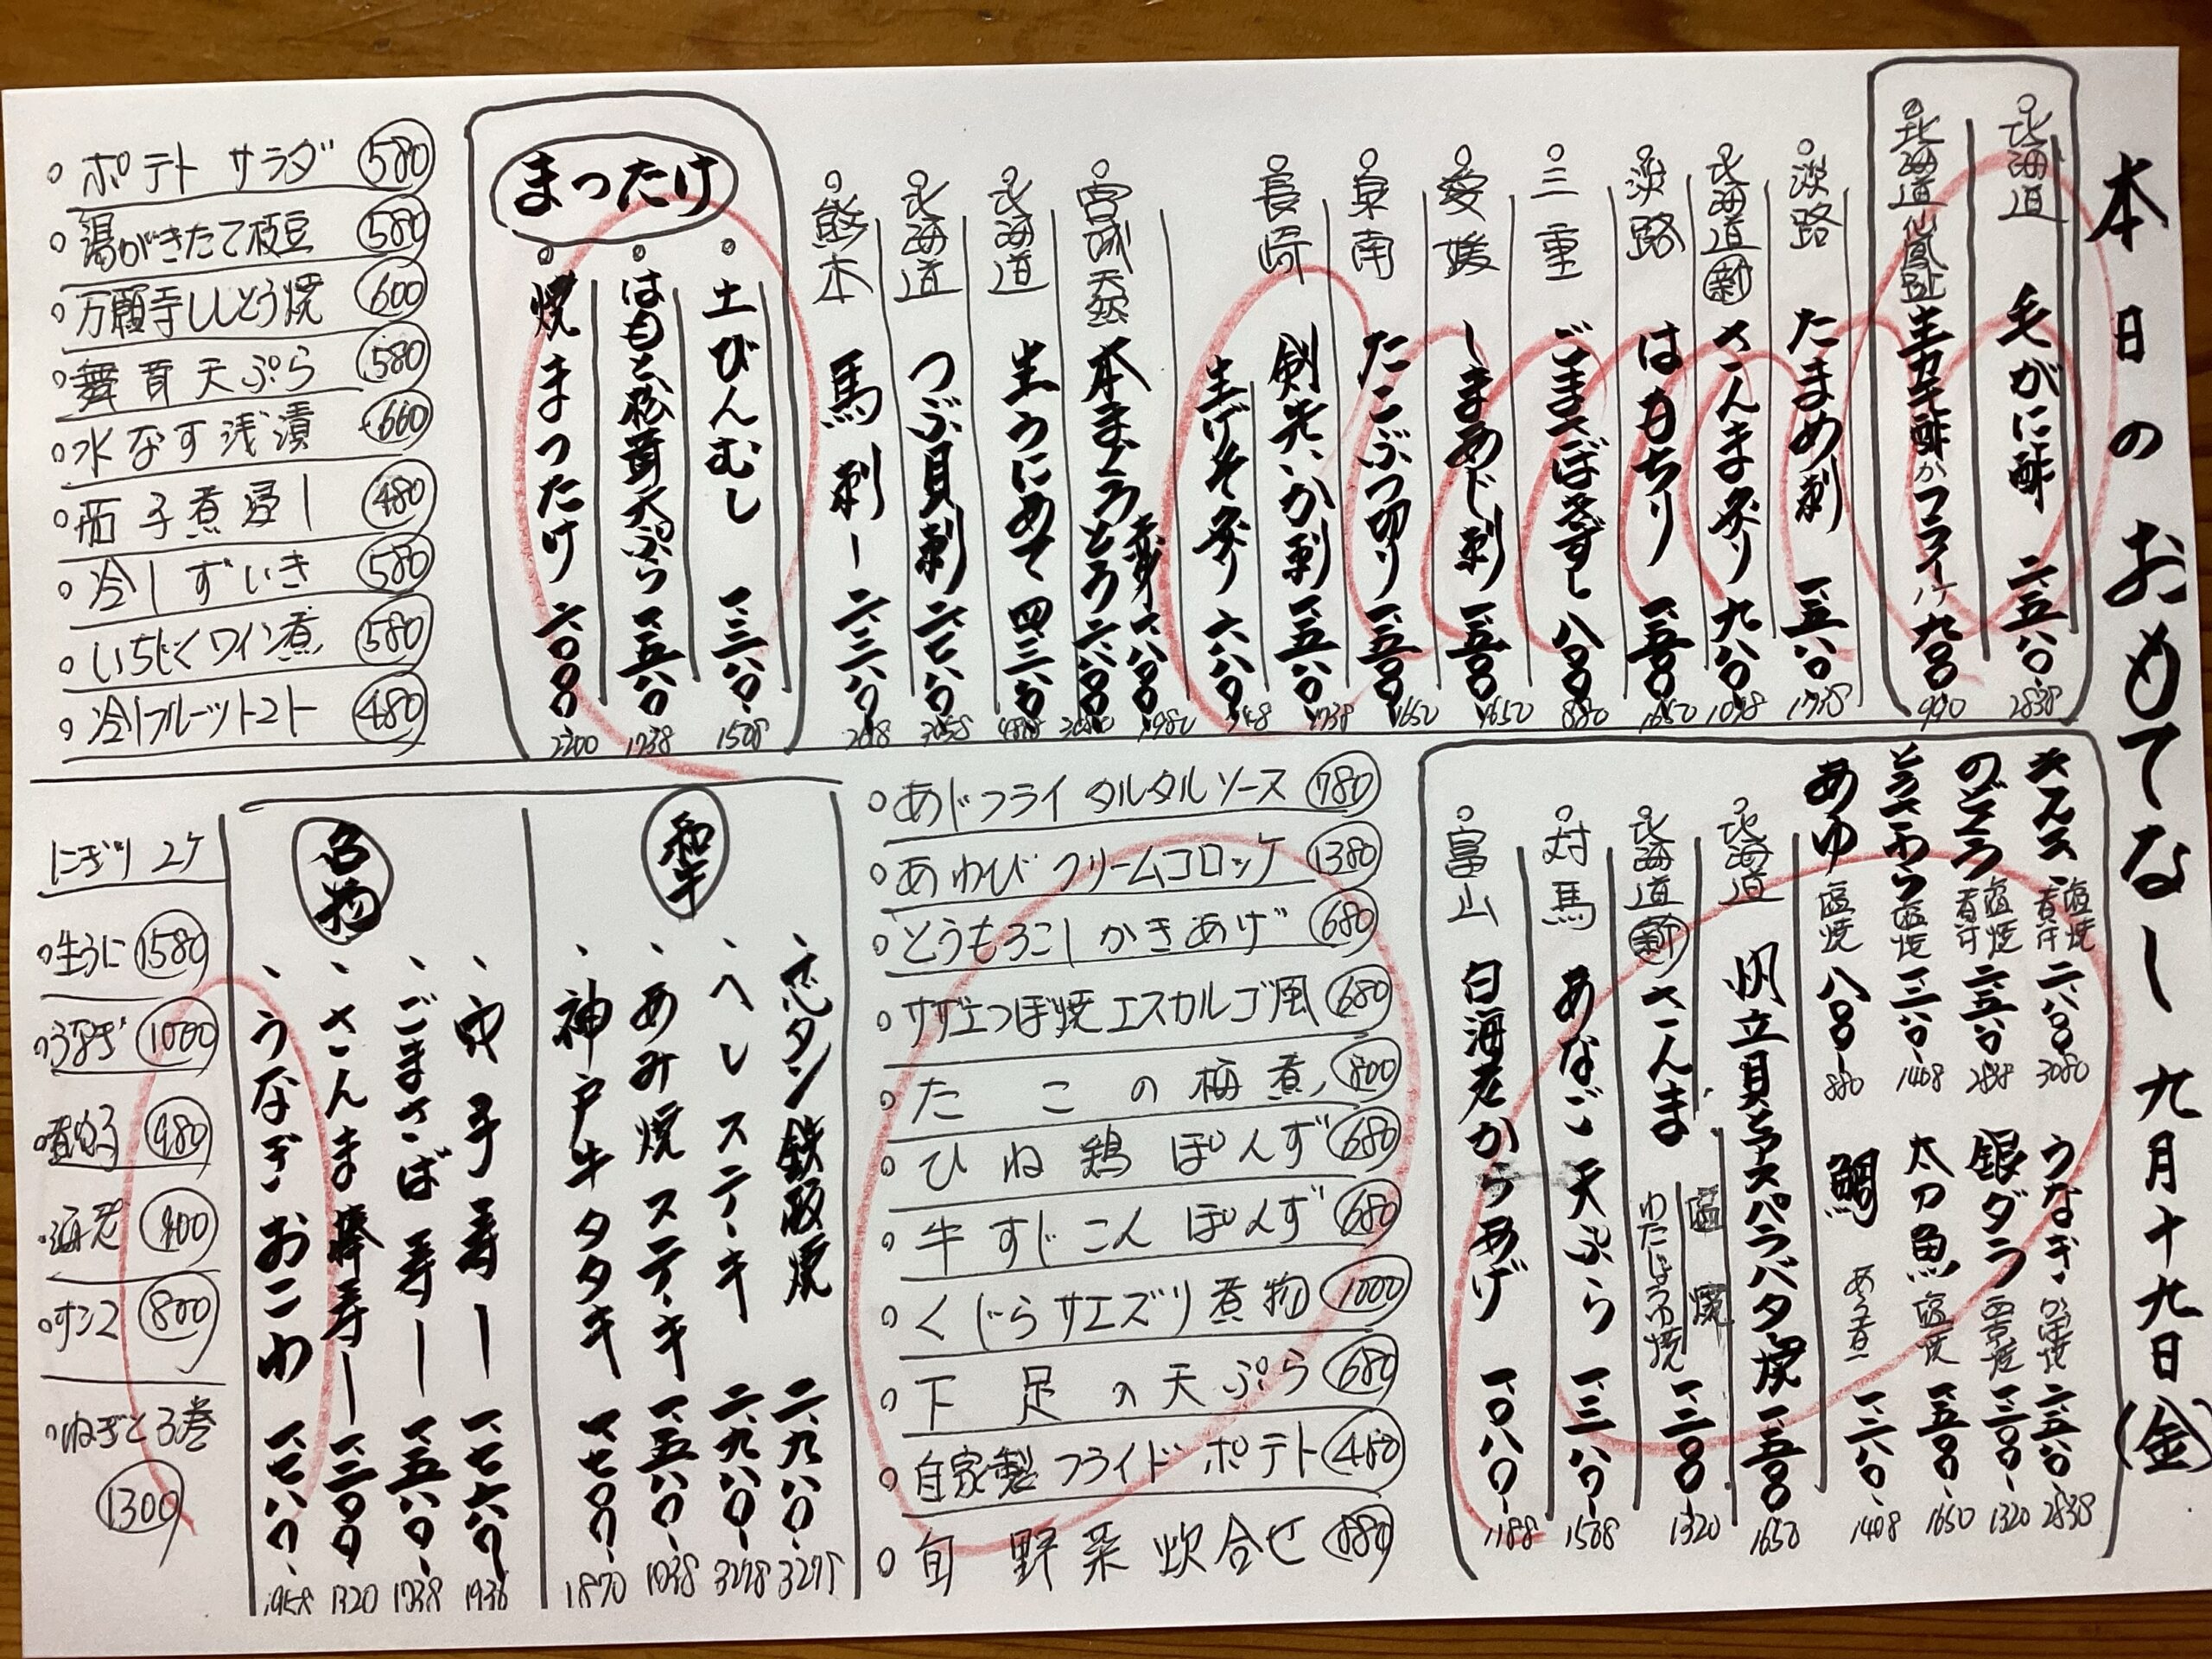 本日のおもてなし 九月十九日(金)
北海道 毛がに酢 二、五八〇、 2838
北海道仙鳳趾 生カキ酢かフライ 1ケ 九〇〇 990
淡路 たまめ刺 一、五八〇、
北海道 新 さんま炙り 九八〇、 1078
淡路 はもちり 一、五〇〇 1650
三重 ごまさばきずし 八〇〇 880
愛媛 しまあじ刺 一、五〇〇 1650
泉南 たこぶつ切り 一、五〇〇 1650
長崎 剣先いか刺 一、五八〇、 1738
生げそ炙り 六八〇 748
宮城 天然 本まぐろ 赤身 一、八〇〇 1980
とろ 二、八〇〇 3080
北海道 生うにめて
北海道 つぶ貝刺 二、七八〇 3058
熊本 馬刺し 二、三八〇
まったけ
土びんむし 一、三八〇、 1518
はもと松茸天ぷら 一、五八〇 1738
焼まつたけ 二、〇〇〇 2200
ポテトサラダ 580
湯がきたて枝豆 580
万願寺ししとう焼 600
舞茸天ぷら 580
水なす浅漬 660
茄子煮浸し 480
冷しずいき 580
いちじくワイン煮 580
冷しフルーツトマト 480
塩焼 煮付 二、八〇〇、 3080
のどぐろ 塩焼 煮付
塩焼 1408
あゆ 塩焼 八〇〇、 880
うなぎ 二、五八〇、 2838
銀ダラ 西京焼 1320
太刀魚 塩焼 一、五〇〇、 1650
鯛 あら煮 1408
北海道 帆立貝とアスパラバター炒 一、五〇〇 1650
北海道 新 さんま 塩焼 わたしょうゆ焼 一、二〇〇 1320
対馬 あなご天ぷら 一、三八〇、
富山 白海老からあげ 一、〇八〇、 1188
あじフライ タルタルソース 780
あわびクリームコロッケ 1380
とうもろこしかきあげ 680
サザエつぼ焼エスカルゴ風 680
たこの梅煮 800
ひね鶏ぽんず 680
牛すじこんぽんず 680
くじらサエズリ煮物 1000
下足の天ぷら 680
自家製フライドポテト 480
旬野菜炊合せ 880
和牛
芯タン鉄板焼 二、九八〇、 3278
ヘレステーキ 二、九八〇、 3278
あみ焼ステーキ 一、五八〇、
神戸牛タタキ 一、七〇〇、 1870
名物
穴子寿し 一、七六〇 1936
ごまさば寿し 一、五八〇、 1738
さんま棒寿し 一、二〇〇 1320
うなぎおこわ 一、七八〇、 1958
にぎり 2ケ
生うに 1580
うなぎ 1000
煮穴子 980
海老 900
サンマ 800
ねぎとろ巻
1300